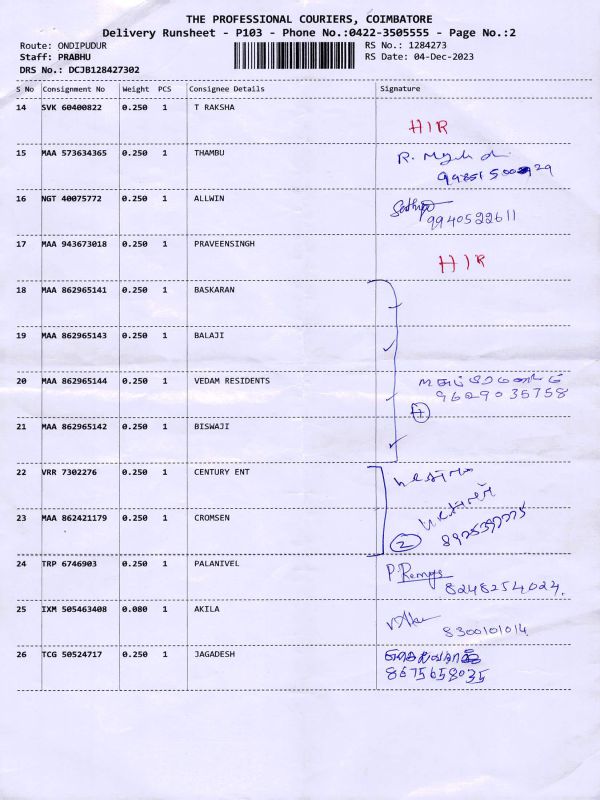 THE PROFESSIONAL COURIERS, COIMBATORE
Delivery Runsheet - P103 - Phone No.:0422-3505555 - Page No.:2
Route: ONDIPUDUR RS No.: 1284273
Staff: PRABHU RS Date: 04-Dec-2023
DRS No.: DCJB128427302
S No Consignment No Weight PCS Consignee Details Signature
14 SVK 60400822 0.250 1 T RAKSHA
HIR
15 MAA 573634365 0.250 1 THAMBU
16 NGT 40075772 0.250 1 ALLWIN
9940522611
17 MAA 943673018 0.250 1 PRAVEENSINGH
HIR
18 MAA 862965141 0.250 1 BASKARAN
19 MAA 862965143 0.250 1 BALAJI
20 MAA 862965144 0.250 1 VEDAM RESIDENTS
9629035758
4
21 MAA 862965142 0.250 1 BISWAJI
22 VRR 7302276 0.250 1 CENTURY ENT
23 MAA 862421179 0.250 1 CROMSEN
2
24 TRP 6746903 0.250 1 PALANIVEL
P. Ramya
8248254024.
25 IXM 505463408 0.080 1 AKILA
8300101014.
26 TCG 50524717 0.250 1 JAGADESH
8675658035